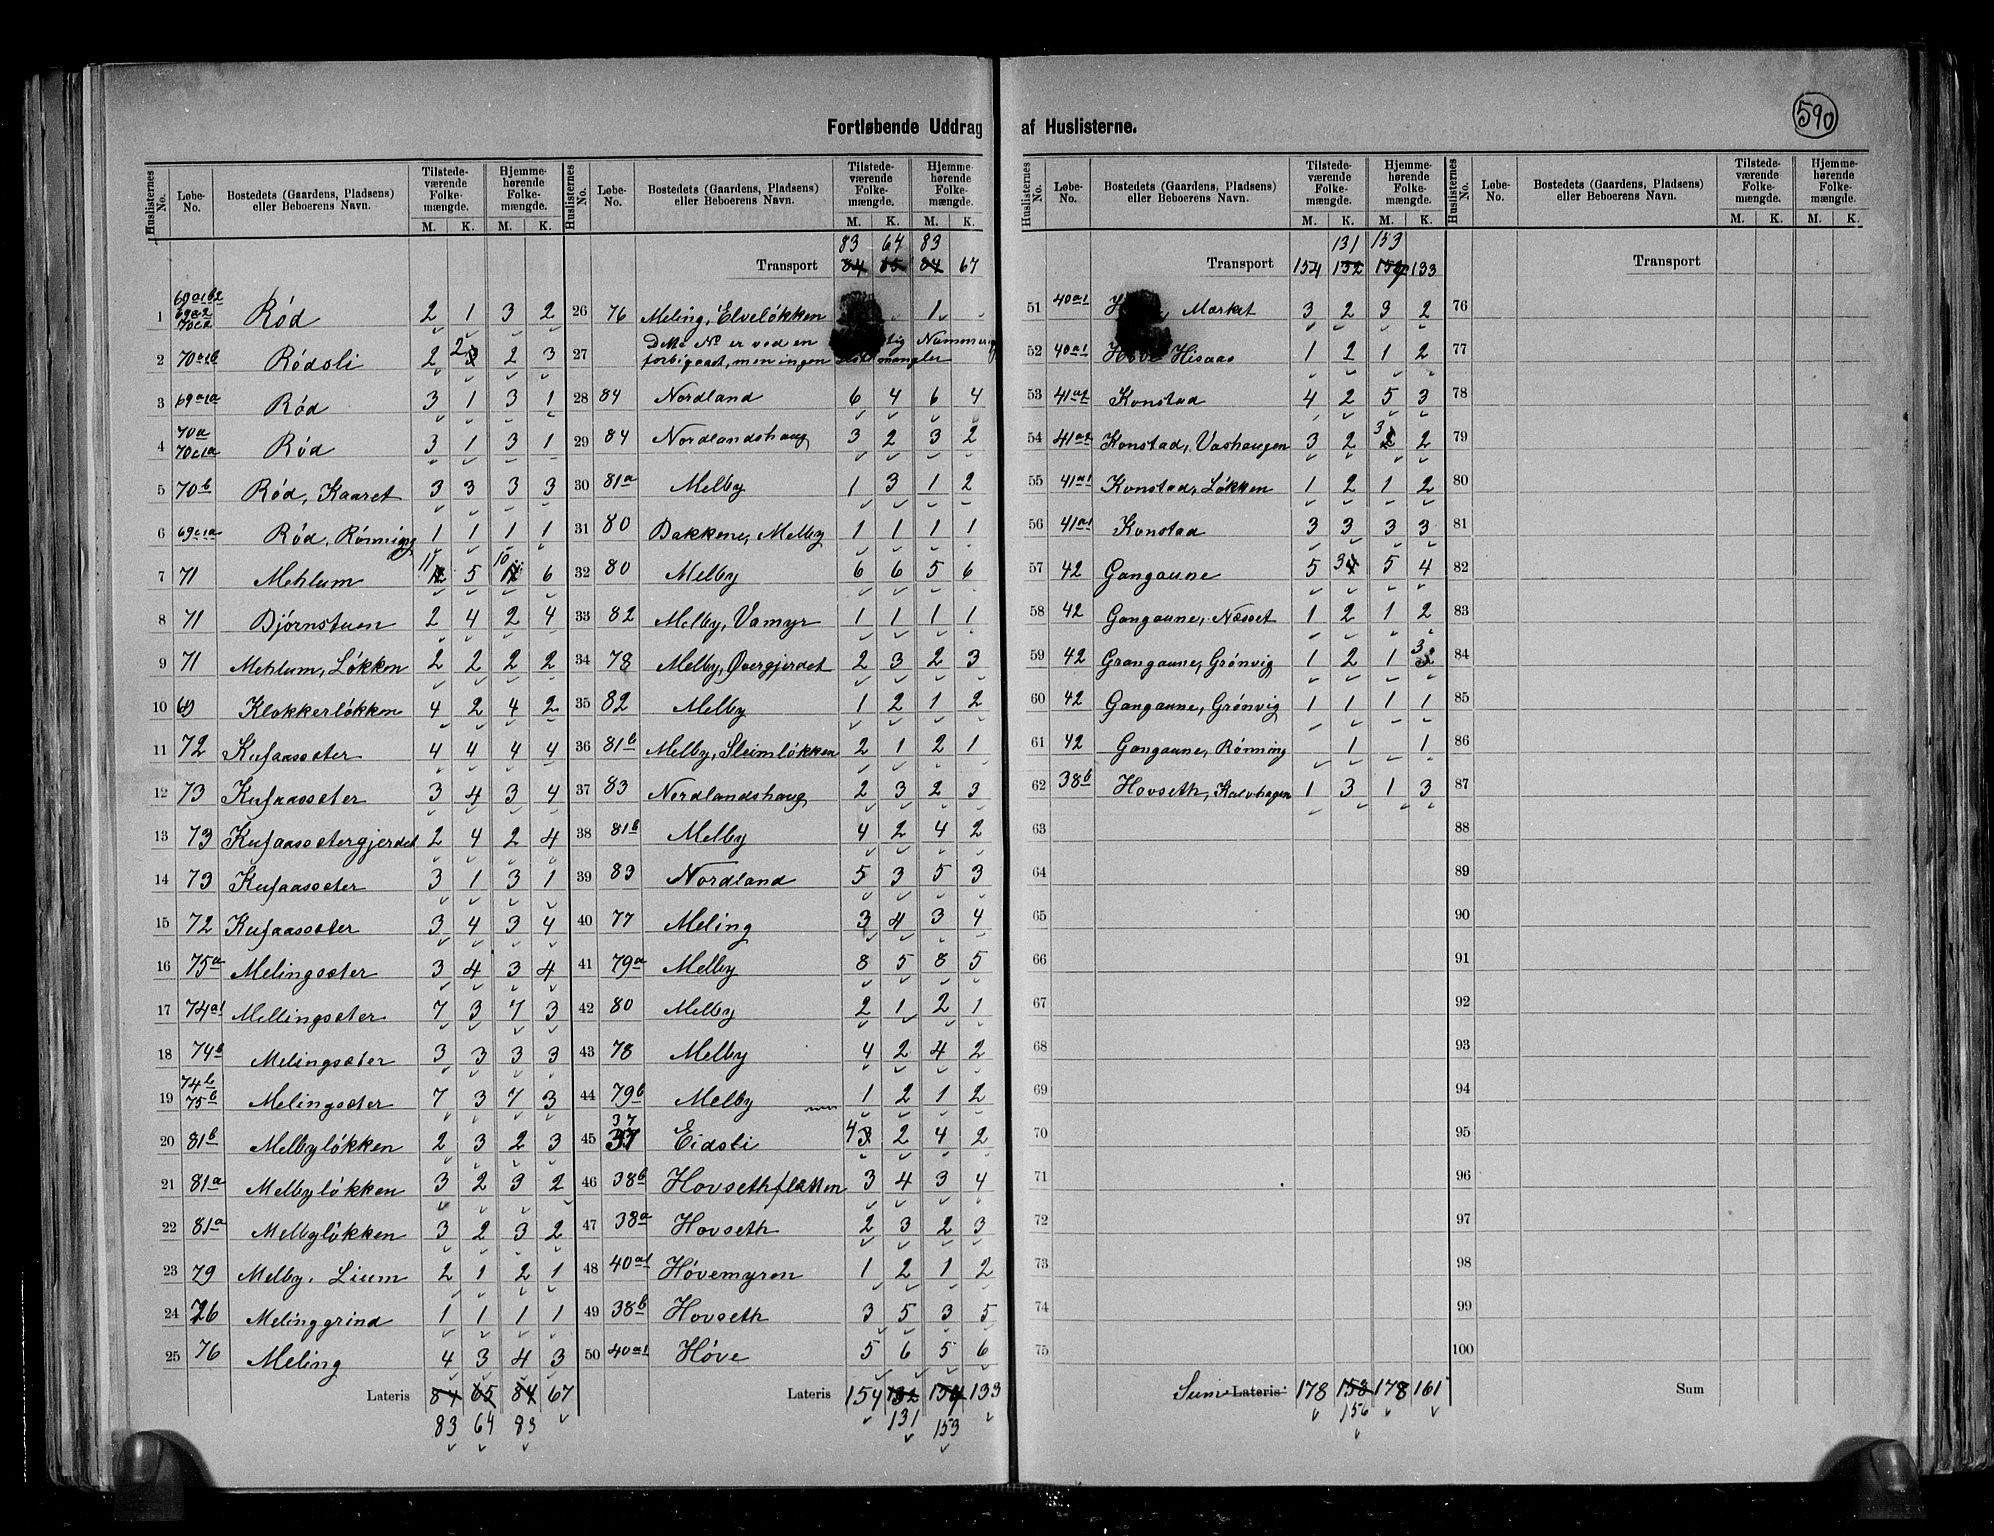 590
Fortløbende Uddrag af Huslisterne.
Huslisternes No. Løbe-No. Bostedets (Gaardens, Pladsens) eller Beboerens Navn. Tilstede-værende Folke-mængde. M. K. Hjemme-hørende Folke-mængde. M. K.
1 69a1b2 69c2 70c2 Rød 2 1 3 2
2 70a1b Rødsli 2 2 2 3
3 69a1a Rød 3 1 3 1
4 70a 70c1a Rød 3 1 3 1
5 70b Rød, Kaaret 3 3 3 3
6 69c1a Rød, Rønning 1 1 1 1
7 71 Mehlum 11 5 10 6
8 71 Bjørnstuen 2 4 2 4
9 71 Mehlum, Løkken 2 2 2 2
10 69 Klokkerløkken 4 2 4 2
11 72 Kufaassæter 4 4 4 4
12 73 Kufaassæter 3 4 3 4
13 73 Kufaassætergjerdet 2 4 2 4
14 73 Kufaassæter 3 1 3 1
15 72 Kufaassæter 3 4 3 4
16 75a Melingsæter 3 4 3 4
17 74a1 Mellingsæter 7 3 7 3
18 74b Melingsæter 3 3 3 3
19 74b 75b Melingsæter 7 3 7 3
20 81b Melbyløkken 2 3 2 3
21 81a Melbyløkken 3 2 3 2
22 81a Melbyløkken 3 2 3 2
23 79 Melby, Lium 2 1 2 1
24 76 Melinggrind 1 1 1 1
25 76 Meling 4 3 4 3
Lateris 84 65 84 67
83 64 83
Huslisternes No. Løbe-No. Bostedets (Gaardens, Pladsens) eller Beboerens Navn. Tilstede-værende Folke-mængde. M. K. Hjemme-hørende Folke-mængde. M. K.
83 64 83
Transport 84 65 84 67
26 76 Meling, Elveløkken 1
27 Dette No er ved en Nummerering
forbigaaet, men ingen mangler
28 84 Nordland 6 4 6 4
29 84 Nordlandshaug 3 2 3 2
30 81a Melby 1 3 1 2
31 80 Bakkene, Melby 1 1 1 1
32 80 Melby 6 6 5 6
33 82 Melby, Vamyr 1 1 1 1
34 78 Melby, Øvergjerdet 2 3 2 3
35 82 Melby 1 2 1 2
36 81b Melby, Sleimløkken 2 1 2 1
37 83 Nordlandshaug 2 3 2 3
38 81b Melby 4 2 4 2
39 83 Nordland 5 3 5 3
40 77 Meling 3 4 3 4
41 79a Melby 8 5 8 5
42 80 Melby 2 1 2 1
43 78 Melby 4 2 4 2
44 79b Melby 1 2 1 2
37
45 37 Eidsli 4 3 2 4 2
46 38b Hovsethflatten 3 4 3 4
47 38a Hovseth 2 3 2 3
48 40a1 Høvemyren 1 2 1 2
49 38b Hovseth 3 5 3 5
50 40a1 Høve 5 6 5 6
Lateris 154 132 154 133
131 153
Huslisternes No. Løbe-No. Bostedets (Gaardens, Pladsens) eller Beboerens Navn. Tilstede-værende Folke-mængde. M. K. Hjemme-hørende Folke-mængde. M. K.
131 153
Transport 154 132 154 133
51 40a1 Market 3 2 3 2
52 40a1 Høve Hisaas 1 2 1 2
53 41a2 Konstad 4 2 5 3
54 41a2 Konstad, Vashaugen 3 2 3 2
55 41a1 Konstad, Løkken 1 2 1 2
56 41a1 Konstad 3 3 3 3
57 42 Gangaune 5 3 5 4
58 42 Gangaune, Næsset 1 2 1 2
59 42 Grangaune, Grønvig 1 2 1 3
60 42 Gangaune, Grønvig 1 1 1 1
61 42 Gangaune, Rønning 1 1
62 38b Hovseth, Kalvhagen 1 3 1 3
63
64
65
66
67
68
69
70
71
72
73
74
75
Sum Lateris 178 158 178 161
156
Huslisternes No. Løbe-No. Bostedets (Gaardens, Pladsens) eller Beboerens Navn. Tilstede-værende Folke-mængde. M. K. Hjemme-hørende Folke-mængde. M. K.
Transport
76
77
78
79
80
81
82
83
84
85
86
87
88
89
90
91
92
93
94
95
96
97
98
99
100
Sum